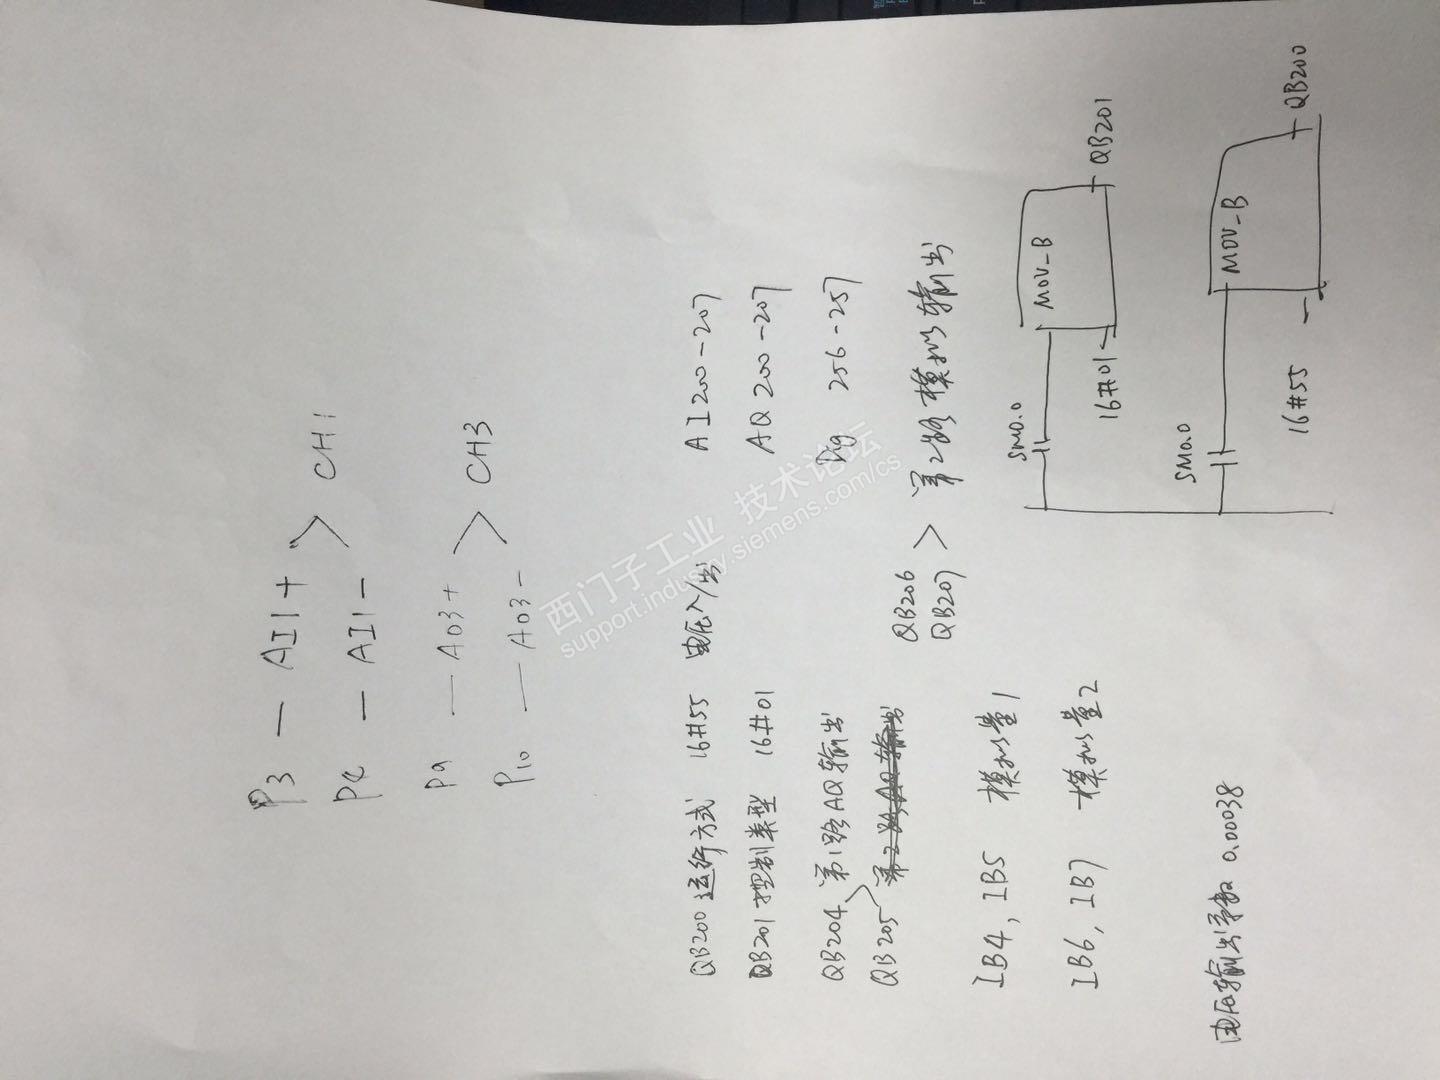 P3 — AI1+ > CH1
P4 — AI1-
P9 — AO3+ > CH3
P10 — AO3-
QB200 运行方式 16#55 电压入/出 AI200-207
QB201 控制类型 16#01 AQ200-207
QB204 第1路AQ输出 256-257
QB205 第2路AQ输出
QB206
QB207 > 第2路模拟输出
IB4, IB5 模拟量1
IB6, IB7 模拟量2
电压输出常数 0.00038
SM0.0 MOV_B
16#01 QB201
SM0.0 MOV_B
16#55 QB200
西门子工业 技术论坛
support.industry.siemens.com/cs